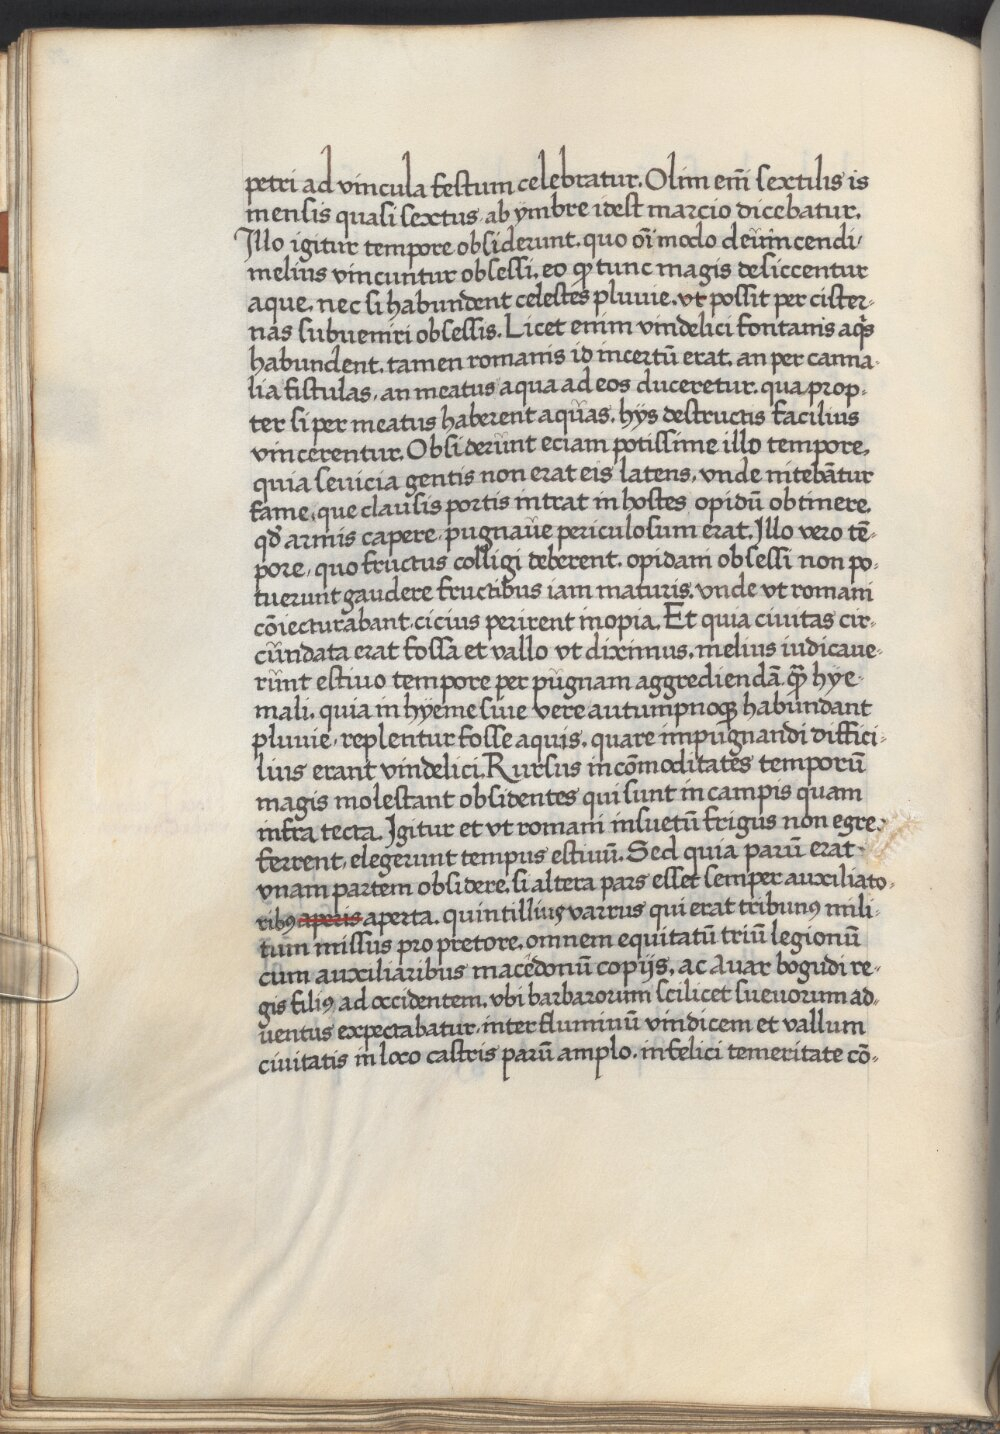 petri ad vincula festum celebratur. Olim em̄ sextilis is
mensis quasi sextus ab ymbre idest marcio dicebatur.
Illo igitur tempore obsiderunt. quo oī modo deuincendi
melius vincuntur obsessi. eo ꝙ tunc magis desiccentur
aque. nec si habundent celestes pluuie. vt possit per cister-
nas subueniri obsessis. Licet enim vindelici fontanis aqs̄
habundent. tamen romanis id incertū erat. an per canna-
lia fistulas. an meatus aqua ad eos duceretur. qua prop-
ter si per meatus haberent aquas. hijs destructis facilius
vincerentur. Obsiderunt eciam potissime illo tempore.
quia seuicia gentis non erat eis latens. vnde nitebātur
fame. que clausis portis intrat in hostes opidū obtinere.
qd̄ armis capere pugnaue periculosum erat. Illo vero tē-
pore. quo fructus colligi deberent. opidani obsessi non po-
tuerunt gaudere fructibus iam maturis. vnde vt romani
cōiecturabant. cicius perirent inopia. Et quia ciuitas cir-
cundata erat fossa et vallo vt diximus. melius iudicaue-
runt estiuo tempore per pugnam aggrediendā ꝙ̄ hye-
mali. quia in hyeme siue vere autumpnoqꝫ habundant
pluuie. replentur fosse aquis. quare impugnandi diffici-
lius erant vindelici. Rursus incōmoditates temporū
magis molestant obsidentes qui sunt in campis quam
infra tecta. Igitur et vt romani insuetū frigus non egre
ferrent. elegerunt tempus estiuū. Sed quia parū erat
vnam partem obsidere. si altera pars esset semper auxiliato-
ribꝯ aperta. quintillius varrus qui erat tribunꝯ mili-
tum missus pro pretore. omnem equitatū triū legionū
cum auxiliaribus macedonū copijs. ac Auar bogudi re-
gis filiꝯ ad occidentem. vbi barbarorum scilicet sueuorum ad-
uentus expectabatur. inter fluminū vindicem et vallum
ciuitatis in loco castris parū amplo. infelici temeritate cō-